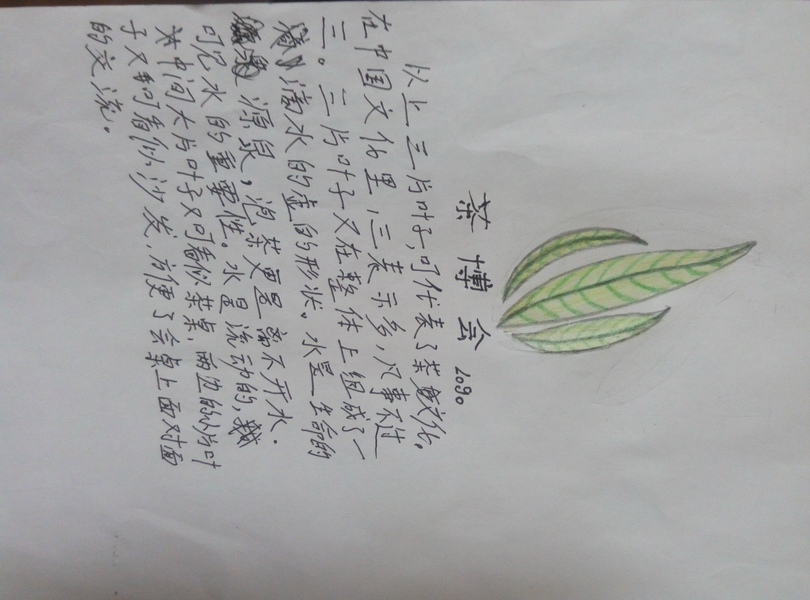 茶博会 logo
以上三片叶子,可代表了茶文化。
在中国文化里,三表示多,凡事不过
三。三片叶子又在整体上组成了一
滴水的虚的形状。水是生命的
源泉,泡茶更是离不开水.
可见水的重要性。水是流动的,
中间大片叶子又可看似茶桌,两边的小片叶
子又可看似沙发,方便了会桌上面对面
的交流。